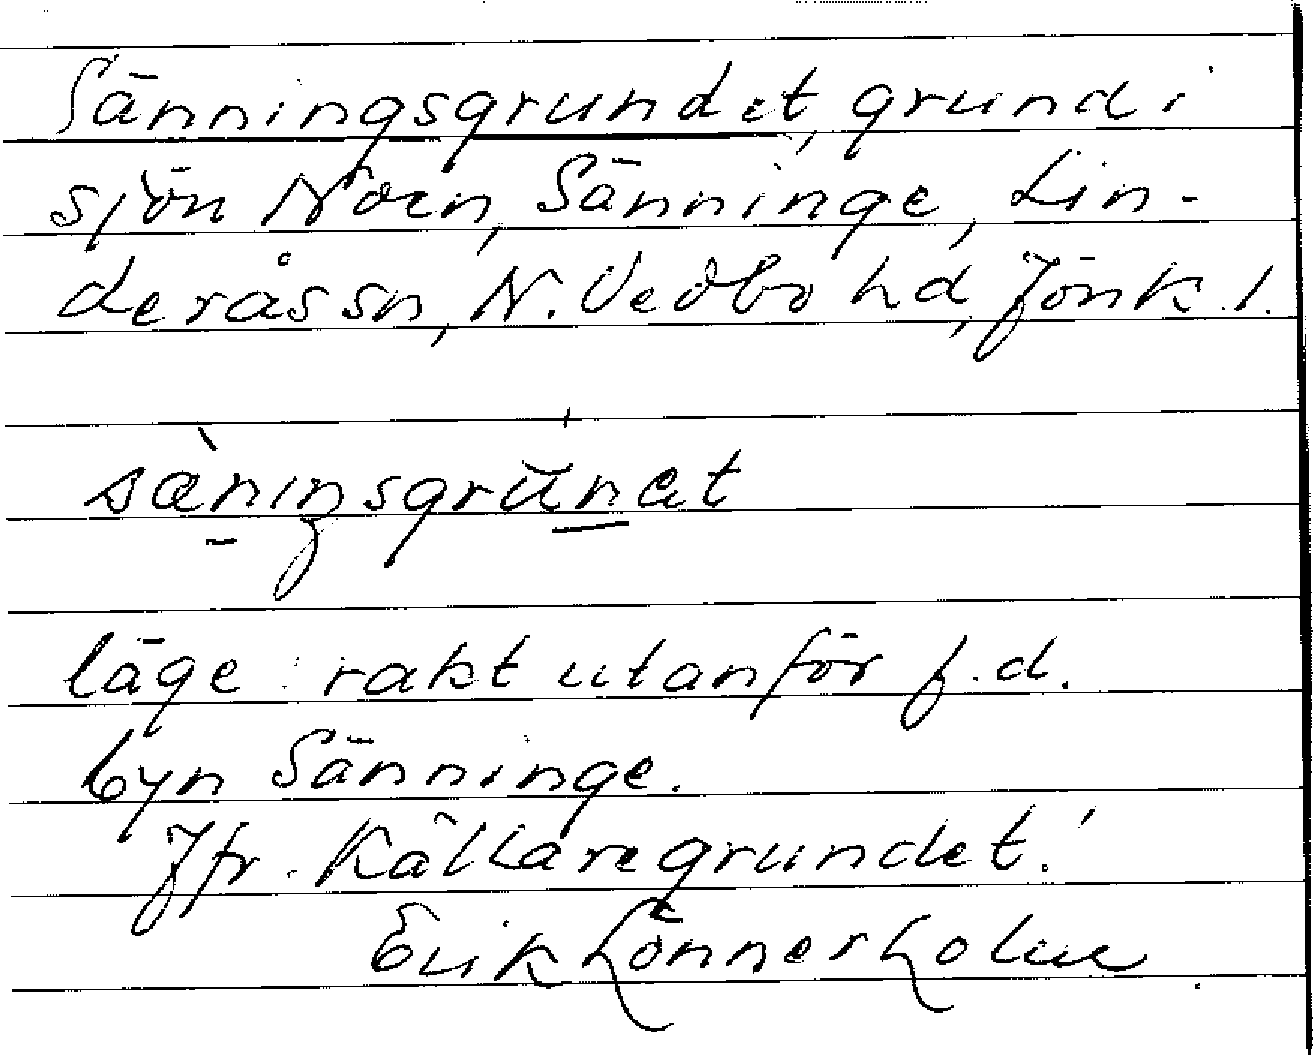 Sänningsgrundet, grund i
sjön Noen, Sänninge, Lin-
deråssn, N. Vedbo hd, Jönk. l.
sæ̀niŋsgrŭnat
läge: rakt utanför f.d.
byn Sänninge.
Jfr. Källaregrundet!
Erik Lönnerholm